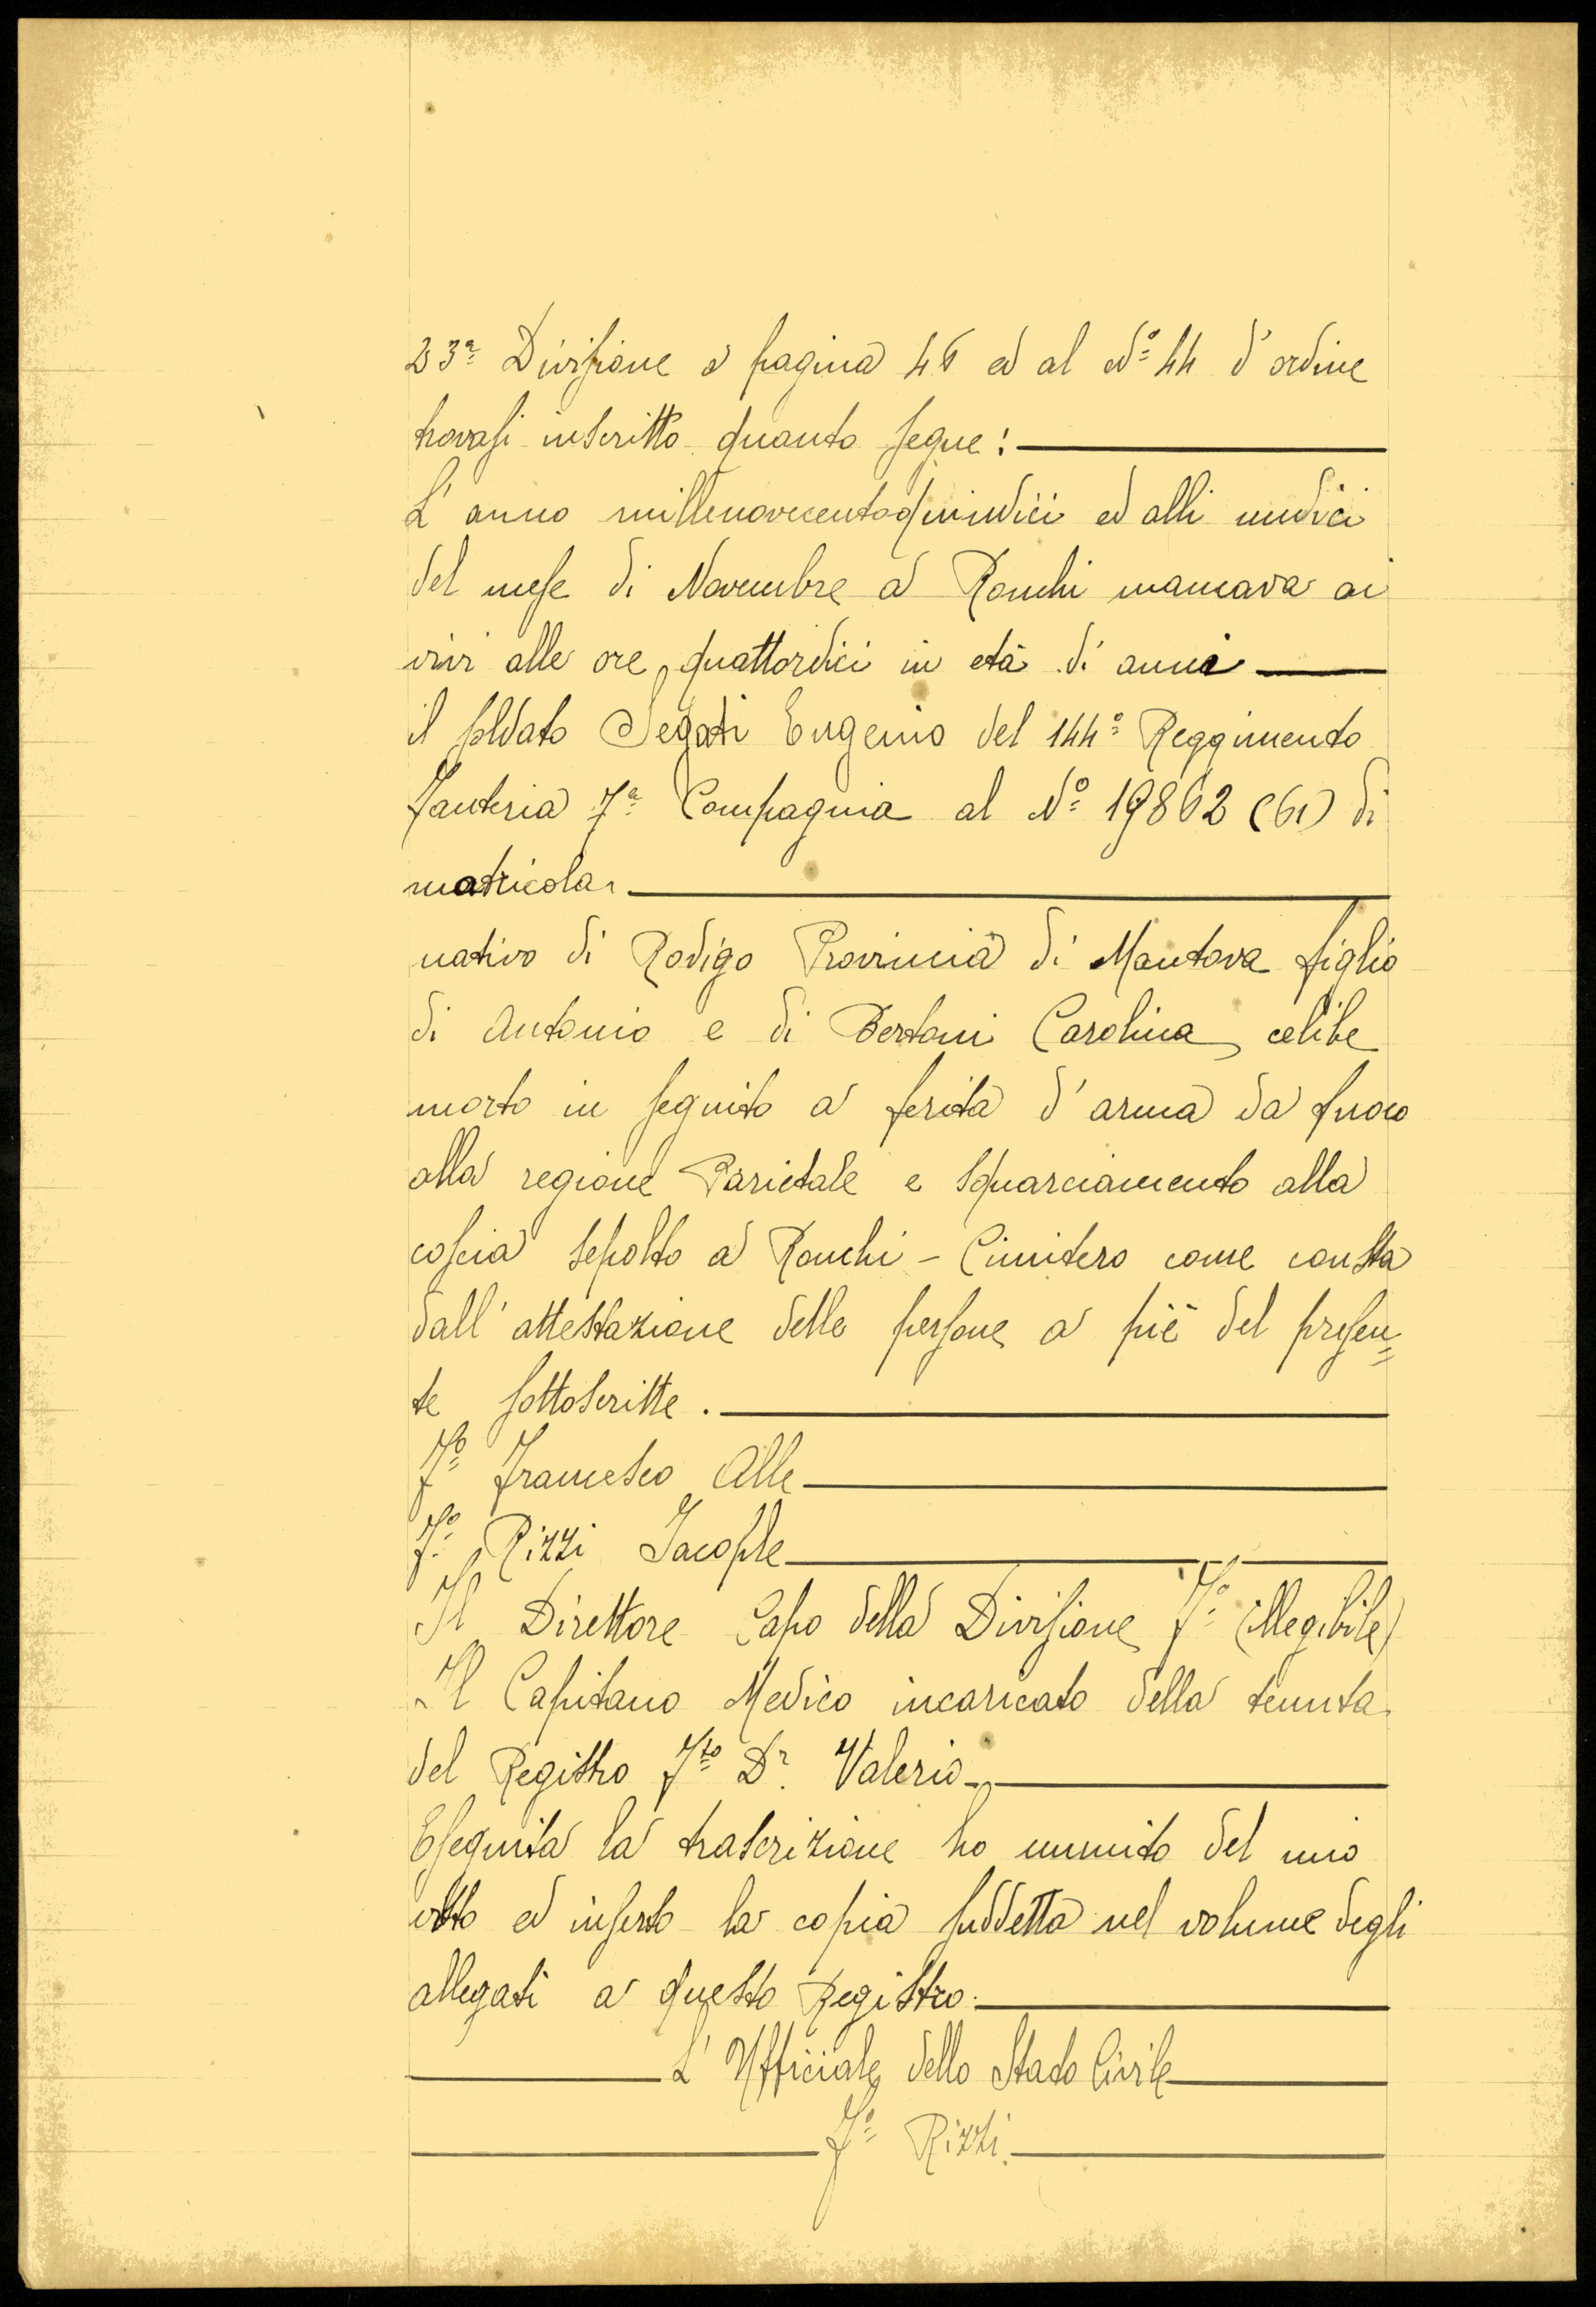 23ª Divisione a pagina 46 ed al Nº 44 d'ordine
trovasi inscritto quanto segue:
L'anno millenovecentoquindici ed alli undici
del mese di Novembre a Ronchi mancava ai
vivi alle ore quattordici in età di anni
il soldato Segati Eugenio del 144º Reggimento
Fanteria 7ª Compagnia al Nº 19862 (61) di
matricola
nativo di Rodigo Provincia di Mantova figlio
di Antonio e di Bertani Carolina, celibe
morto in seguito a ferita d'arma da fuoco
alla regione Parietale e squarciamento alla
coscia sepolto a Ronchi - Cimitero come consta
dall'attestazione delle persone a piè del presen=
te sottoscritte.
Fº Francesco Alle
Fº Rizzi
Il Direttore Capo della Divisione Fº (illegibile)
Il Capitano Medico incaricato della tenuta
del Registro Fto Dr. Valerio
Eseguita la trascrizione ho munito del mio
visto ed inserto la copia suddetta nel volume degli
allegati a questo Registro.
L'Ufficiale dello Stato Civile
Fº Rizzi.